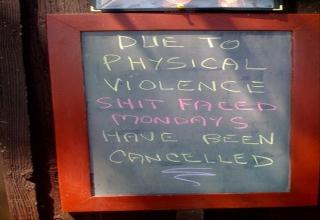 DUE TO
PHYSICAL
VIOLENCE
SHIT FACED
MONDAYS
HAVE BEEN
CANCELLED